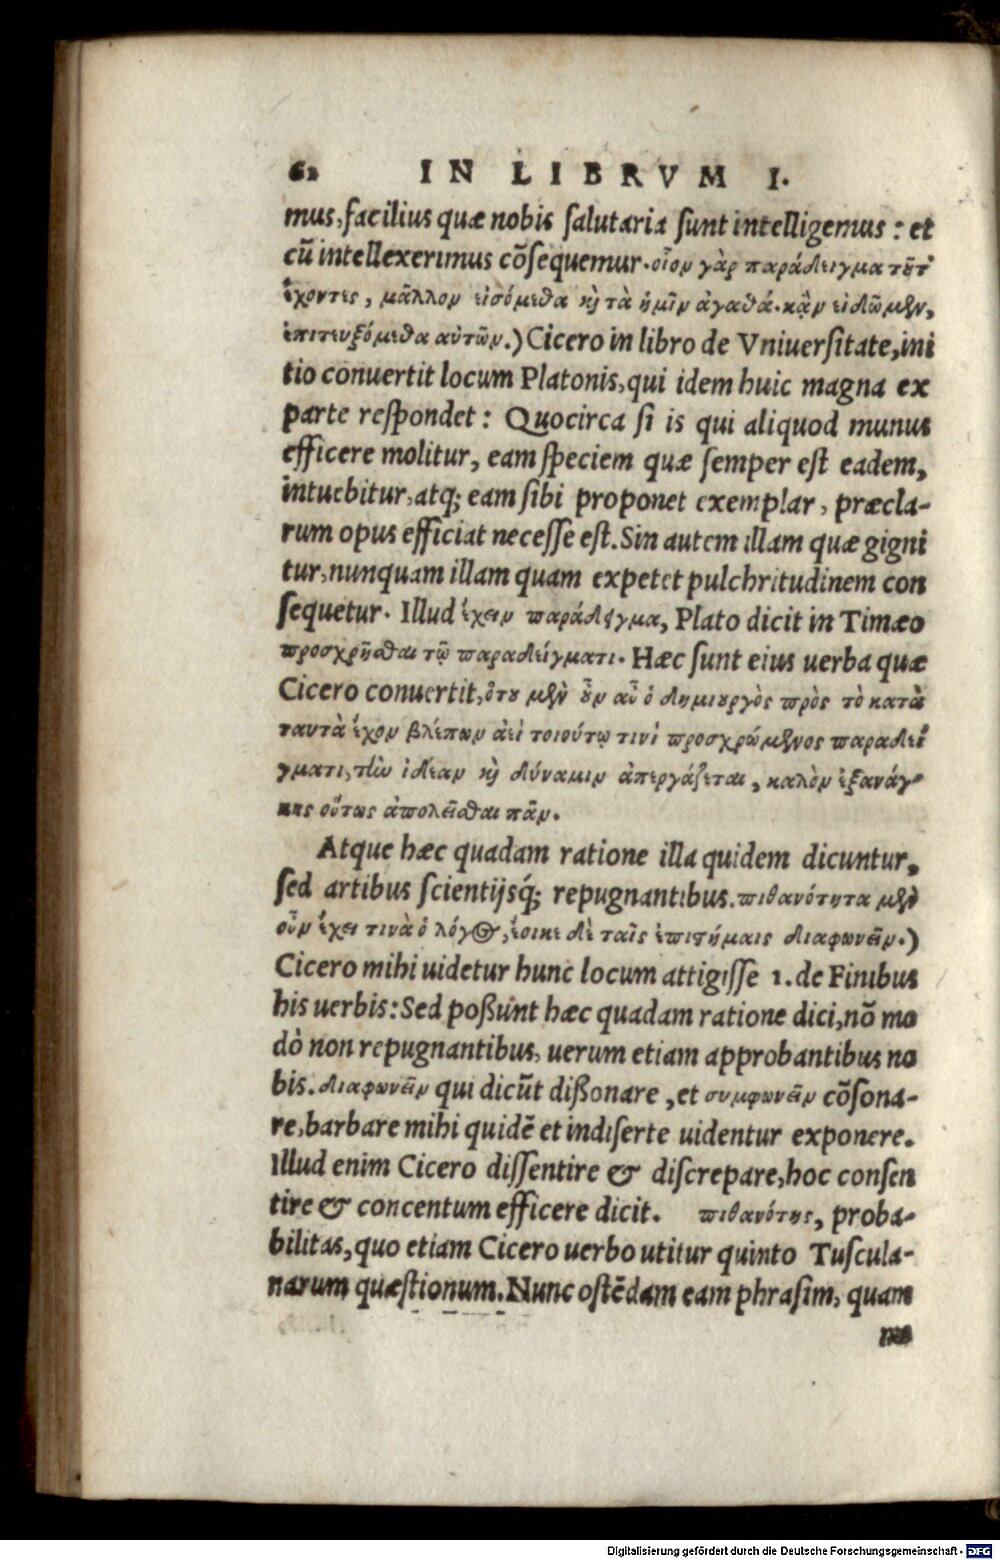 62 IN LIBRVM I.
mus, facilius quæ nobis salutaria sunt intelligemus : et
cū intellexerimus cōsequemur. οἷον γὰρ παράδειγμα τοῦτ'
ἔχοντες, μᾶλλον εἰσόμεθα καὶ τὰ ἡμῖν ἀγαθά. κἂν εἰδῶμεν,
ἐπιτευξόμεθα αὐτῶν.) Cicero in libro de Vniuersitate, ini
tio conuertit locum Platonis, qui idem huic magna ex
parte respondet : Quocirca si is qui aliquod munus
efficere molitur, eam speciem quæ semper est eadem,
intuebitur, atq; eam sibi proponet exemplar, præcla-
rum opus efficiat necesse est. Sin autem illam quæ gigni
tur, nunquam illam quam expetet pulchritudinem con
sequetur. Illud ἔχειν παράδειγμα, Plato dicit in Timæo
προσχρῆσθαι τῷ παραδείγματι. Hæc sunt eius uerba quæ
Cicero conuertit, ὅτου μὲν οὖν αὖ ὁ δημιουργὸς πρὸς τὸ κατὰ
ταυτὰ ἔχον βλέπων ἀεὶ τοιούτῳ τινὶ προσχρώμενος παραδεί
γματι, τὴν ἰδέαν καὶ δύναμιν ἀπεργάζεται, καλὸν ἐξανάγ-
κης οὕτως ἀπολεῖσθαι πᾶν.
Atque hæc quadam ratione illa quidem dicuntur,
sed artibus scientijsq́; repugnantibus. πιθανότητα μὲν
οὖν ἔχει τινὰ ὁ λόγος, ἔοικε δὲ ταῖς ἐπιστήμαις διαφωνεῖν.)
Cicero mihi uidetur hunc locum attigisse 1. de Finibus
his uerbis: Sed poßunt hæc quadam ratione dici, nō mo
dò non repugnantibus, uerum etiam approbantibus no
bis. διαφωνεῖν qui dicūt dißonare, et συμφωνεῖν cōsona-
re, barbare mihi quidē et indiserte uidentur exponere.
Illud enim Cicero dissentire & discrepare, hoc consen
tire & concentum efficere dicit. πιθανότης, proba-
bilitas, quo etiam Cicero uerbo utitur quinto Tuscula-
narum quæstionum. Nunc ostēdam eam phrasim, quam
Digitalisierung gefördert durch die Deutsche Forschungsgemeinschaft - DFG